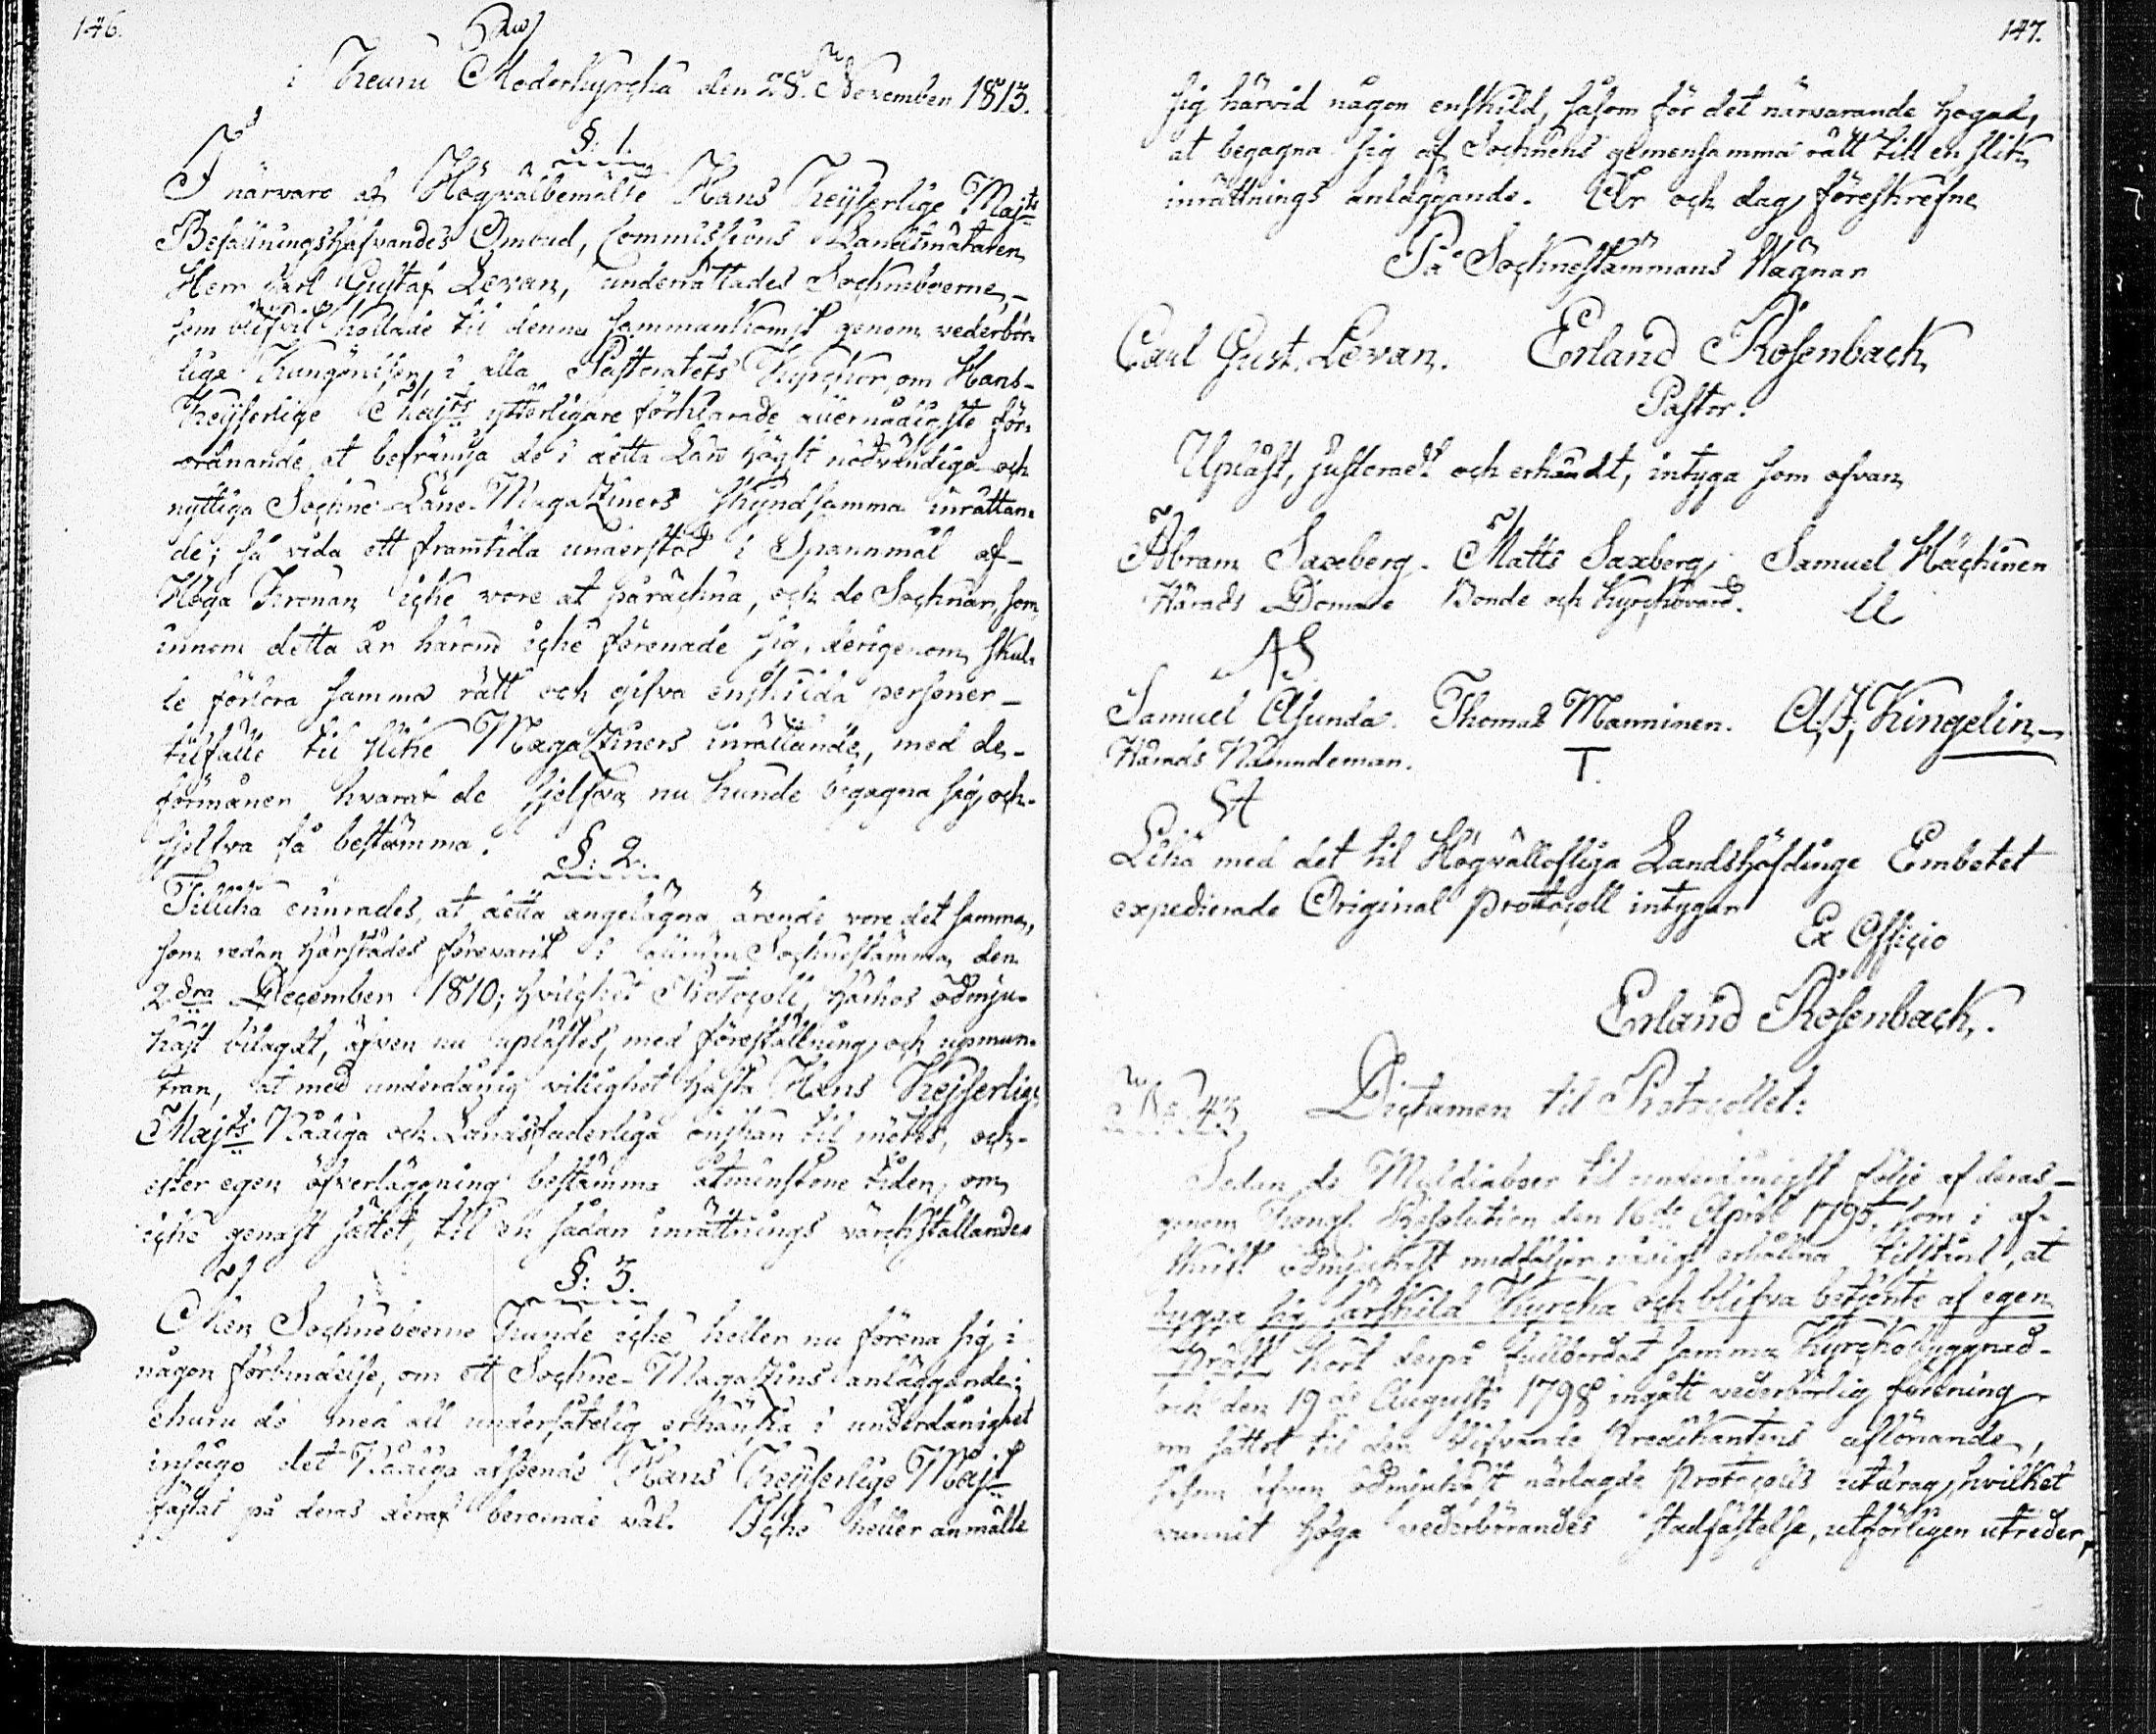 146.
i Keuru Moderkyrcka den 28. November 1813.
§: 1.
I närvaro af Högvälbemälte Hans Keijserlige Majts
Befallningshafvandes Ombud, Commissions Landtmätaren
Herr Carl Gustaf Levan, underrättades Sockneboerne,
som blifvit kallade til denna sammankomst genom vederbör-
lige Kungörelser, i alla Pastoratets Kyrckor, om Hans
Keijserlige Majts ytterligare förklarade allernådigste för-
ordnande, at befrämja de i detta Län högst nödvändiga och
nyttiga Sockne Låne-Magaziners skyndsamma inrättan-
de; så vida ett framtida understöd i Spannmål af
Höga Kronan icke vore at påräckna, och de Socknar, som
innom detta år härom icke förenade sig, derigenom skul-
le förlora samma rätt och gifva enskilda personer
tilfälle til slike Magaziners inrättande, med de
förmåner hvaraf de sjelfva nu kunde begagna sig och
sjelfva få bestämma.
§: 2.
Tillika erinrades, at detta angelägna ärende vore det samma,
som redan härstädes förevarit i allmän Sockne stämma den
2dra December 1810; hvilcket Protocoll, härhos ödmju-
kast bilagdt, äfven nu uplästes, med föreställning och upmun-
tran, at med underdånig villighet hasta Hans Keijserlige
Majts Nådiga och Landsfaderliga önskan til mötes, och
efter egen öfverläggning bestämma åtminstone tiden, om
icke genast sättet, til en sådan inrättnings värckställande.
§: 3.
Men Sockneboerne kunde icke heller nu förena sig i
någon förbindelse, om ett Sockne-Magazins anläggande;
ehuru de med all undersåtelig erkänsla i underdånighet
insågo det Nådiga afseende Hans Keijserlige Majt
fästat på deras deraf beroende väl. Icke heller anmälte
147.
sig härvid någon enskild, såsom för det närvarande hogad,
at begagna sig af Socknens gemensamma rätt till en slik
inrättnings anläggande. År och dag föreskrefne
På Socknestämmans Wägnar
Carl Gust. Levan. Erland Rosenbach
Pastor.
Upläst, justeradt och erkändt, intyga som ofvan
Abram Saxberg. Matts Saxberg. Samuel Häckinen
Härads Domare Bonde och Kyrckovärd.
AS
Samuel Asunda. Thomas Manninen. A. J. Kingelin
Härads Nämndeman. T.
SA
Lika med det til Högvällofliga Landshöfdinge Embetet
expedierade Original Protocoll intygar
Ex Officio
Erland Rosenbach.
No 43. Dictamen til Protocollet:
Sedan de Muldiaboer til underdånigst följe af deras
genom Kongl. Resolution den 16de April 1795, som i af-
skrift ödmjukast medföljer nådigt erhållna tillstånd, at
bygga sig särskild Kyrcka och blifva betjente af egen
Präst kort derpå fullbordat samma Kyrckobyggnad
och den 19de Augusti 1798 ingått vederbörlig förening
om sättet til den blifvande Predikantens aflönande,
såsom äfven ödmjukast närlagde Protocolls utdrag, hvilket
vunnit höga vederbörandes stadfästelse, utförligen utreder,